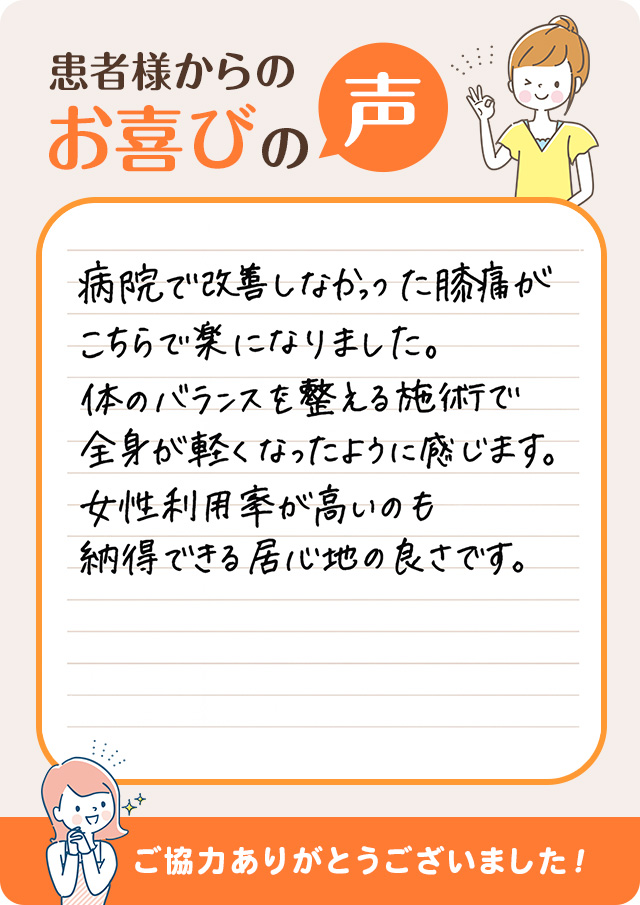 患者様からの
お喜びの声
病院で改善しなかった膝痛が
こちらで楽になりました。
体のバランスを整える施術で
全身が軽くなったように感じます。
女性利用率が高いのも
納得できる居心地の良さです。
ご協力ありがとうございました！